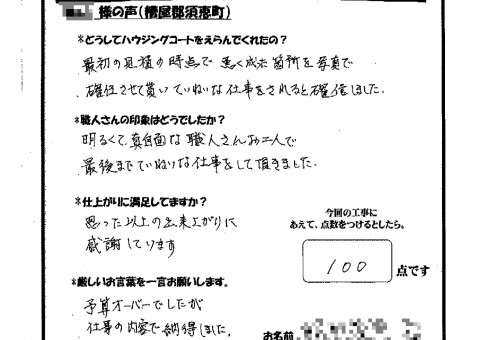 様の声（糟屋郡須恵町）
*どうしてハウジングコートをえらんでくれたの？
最初の見積の時点で 悪く成た箇所を写真で
確任させて貰いていねいな仕事をされると確信しました.
*職人さんの印象はどうでしたか？
明るくて真面目な職人さんお二人で
最後までていねいな仕事をして頂きました.
*仕上がりに満足してますか？
思った以上の出来上がりに
感謝しています
今回の工事に
あえて、点数をつけるとしたら。
100 点です
*厳しいお言葉を一言お願いします。
予算オーバーでしたが
仕事の内容で納得しました.
お名前